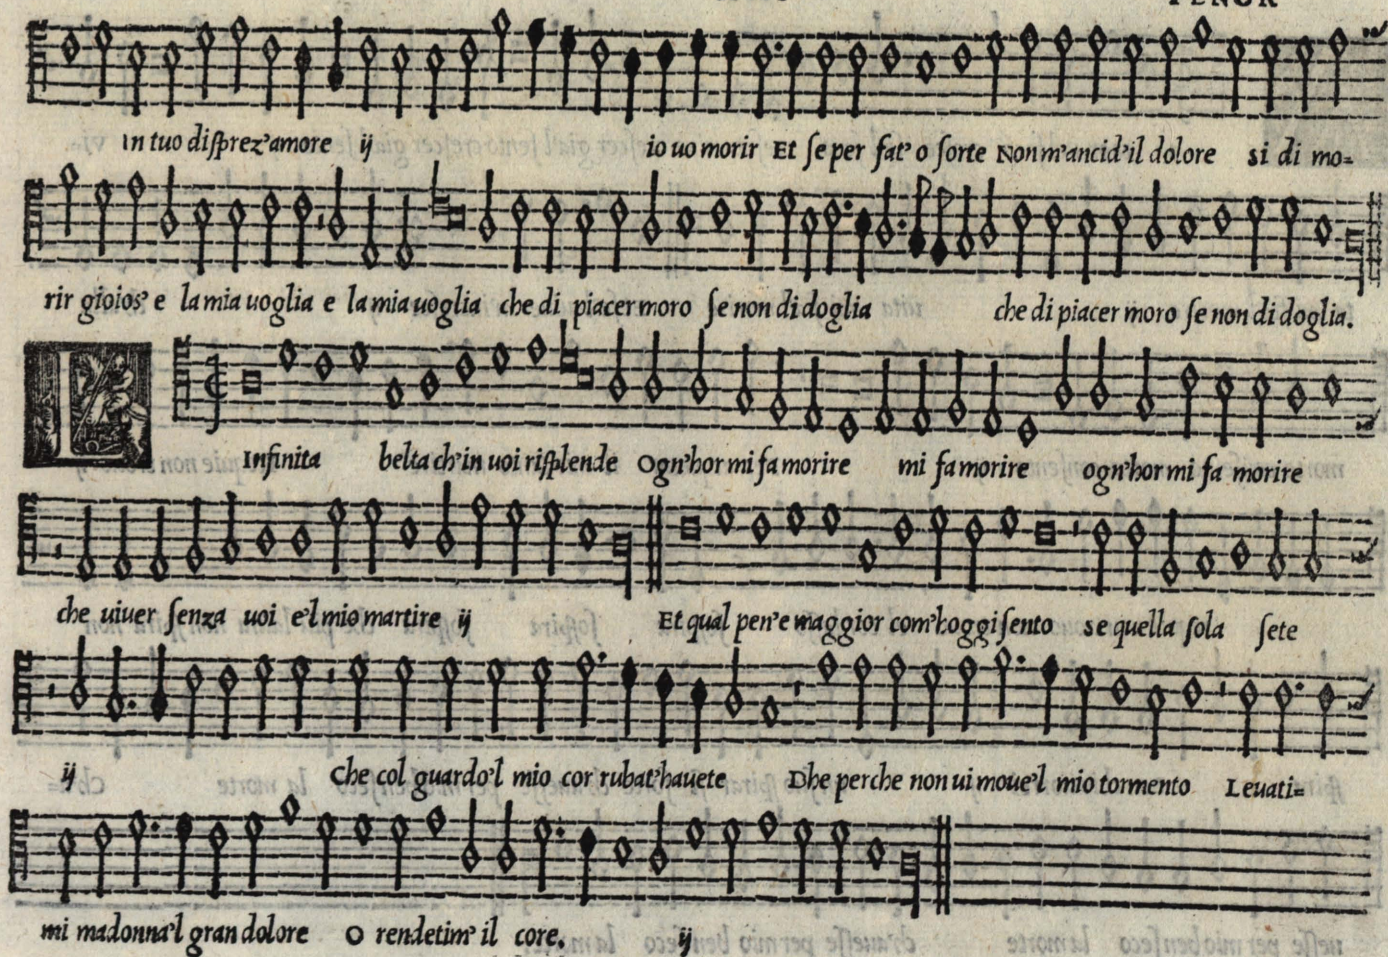 TENOR
In tuo diſprez'amore ij io uo morir Et ſe per fat' o ſorte Non m'ancid'il dolore si di mo=
rir gioios' e la mia uoglia e la mia uoglia che di piacer moro ſe non di doglia che di piacer moro ſe non di doglia.
L
Infinita belta ch'in uoi riſplende Ogn'hor mi fa morire mi fa morire ogn'hor mi fa morire
che uiuer ſenza uoi e'l mio martire ij Et qual pen'e maggior com'hoggi ſento se quella ſola ſete
ij Che col guardo'l mio cor rubat'hauete Dhe perche non ui moue'l mio tormento Leuati=
mi madonna'l gran dolore O rendetim' il core. ij